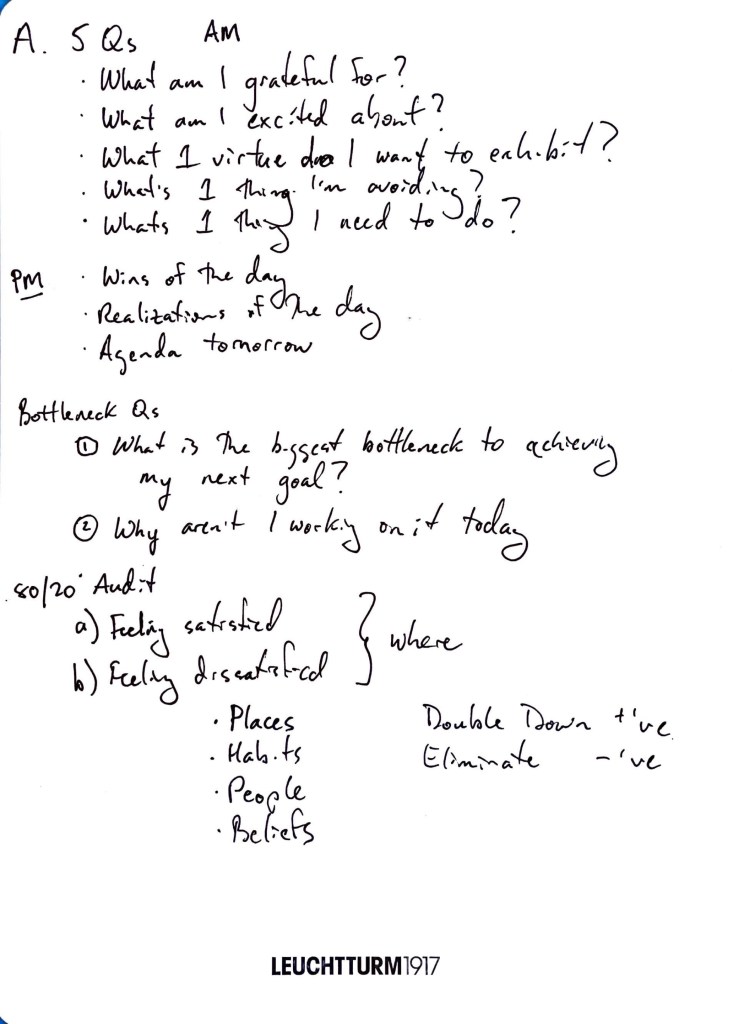 A. 5 Qs AM
· What am I grateful for?
· What am I excited about?
· What 1 virtue do I want to exhibit?
· What's 1 thing I'm avoiding?
· Whats 1 thing I need to do?
PM · Wins of the day
· Realizations of the day
· Agenda tomorrow
Bottleneck Qs
① What is the biggest bottleneck to achieving
my next goal?
② Why aren't I working on it today
80/20 Audit
a) Feeling satisfied
b) Feeling dissatisfied } where
· Places Double Down +'ve
· Habits Eliminate -'ve
· People
· Beliefs
LEUCHTTURM1917